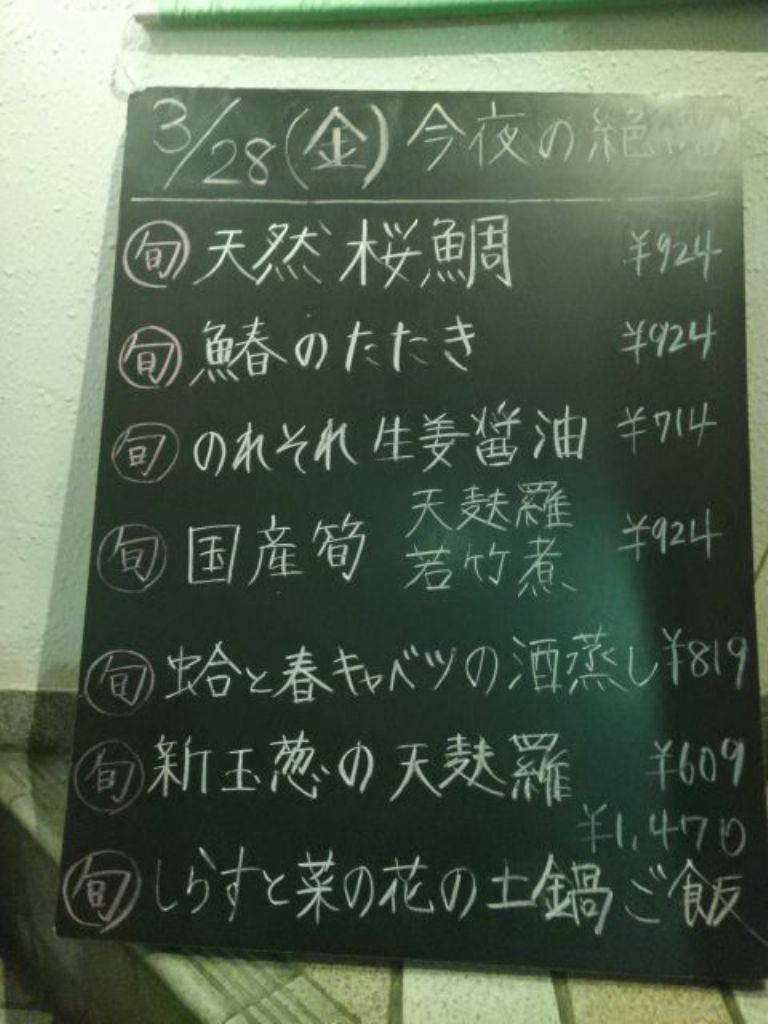 3/28(金) 今夜の絶
旬 天然 桜鯛 ¥924
旬 鰆のたたき ¥924
旬 のれそれ 生姜醤油 ¥714
旬 国産筍 天麩羅 若竹煮 ¥924
旬 蛤と春キャベツの酒蒸し ¥819
旬 新玉葱の天麩羅 ¥609
¥1,470
旬 しらすと菜の花の土鍋ご飯